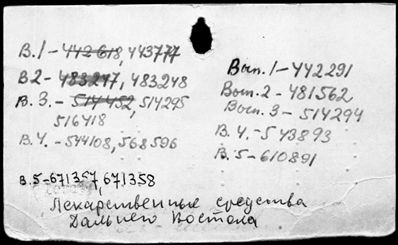 В.1-442618, 443777
В2-483247, 483248
В.3.-514452, 514295
516418
В.4.-544108, 568596
В.5-671357, 671358
Вып.1-442291
Вып.2-481562
Вып.3-514294
В.4.-543893
В.5-610891
Лекарственные средства
Дальнего Востока